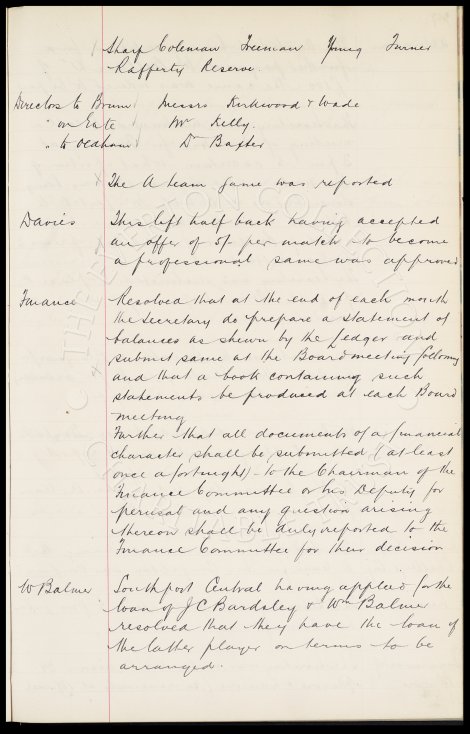 Sharp Coleman Freeman Young Turner
Rafferty Reserve.
Directors to Brom Messrs Kirkwood & Wade
" on Gate Mr Kelly.
" to Oldham Dr Baxter
The A team game was reported
Davies This left half back having accepted
an offer of 5/- per match to become
a professional same was approved
Finance Resolved that at the end of each month
the Secretary do prepare a statement of
balances as shewn by the Ledger and
submit same at the Board meeting following
and that a book containing such
statements be produced at each Board
meeting
Further that all documents of a financial
character shall be submitted (at least
once a fortnight) to the Chairman of the
Finance Committee or his Deputy for
perusal and any question arising
thereon shall be duly reported to the
Finance Committee for their decision
W Balmer Southport Central having applied for the
loan of J C Bardsley & Wm Balmer
resolved that they have the loan of
the latter player on terms to be
arranged.